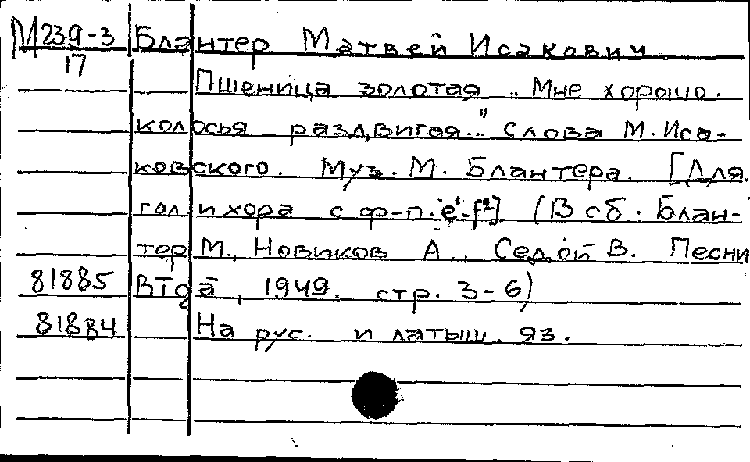 М239-3 Блантер Матвей Исакович
17
Пшеница золотая „Мне хорошо.
колосья раздвигая..." Слова М. Иса-
ковского. Муз. М. Блантера. [Для
гол. и хора с ф-п. e¹-f²] (В сб. Блан-
тер М., Новиков А., Седой В. Песни
81885 , 1949. стр. 3-6)
81884 На рус. и латыш. яз.